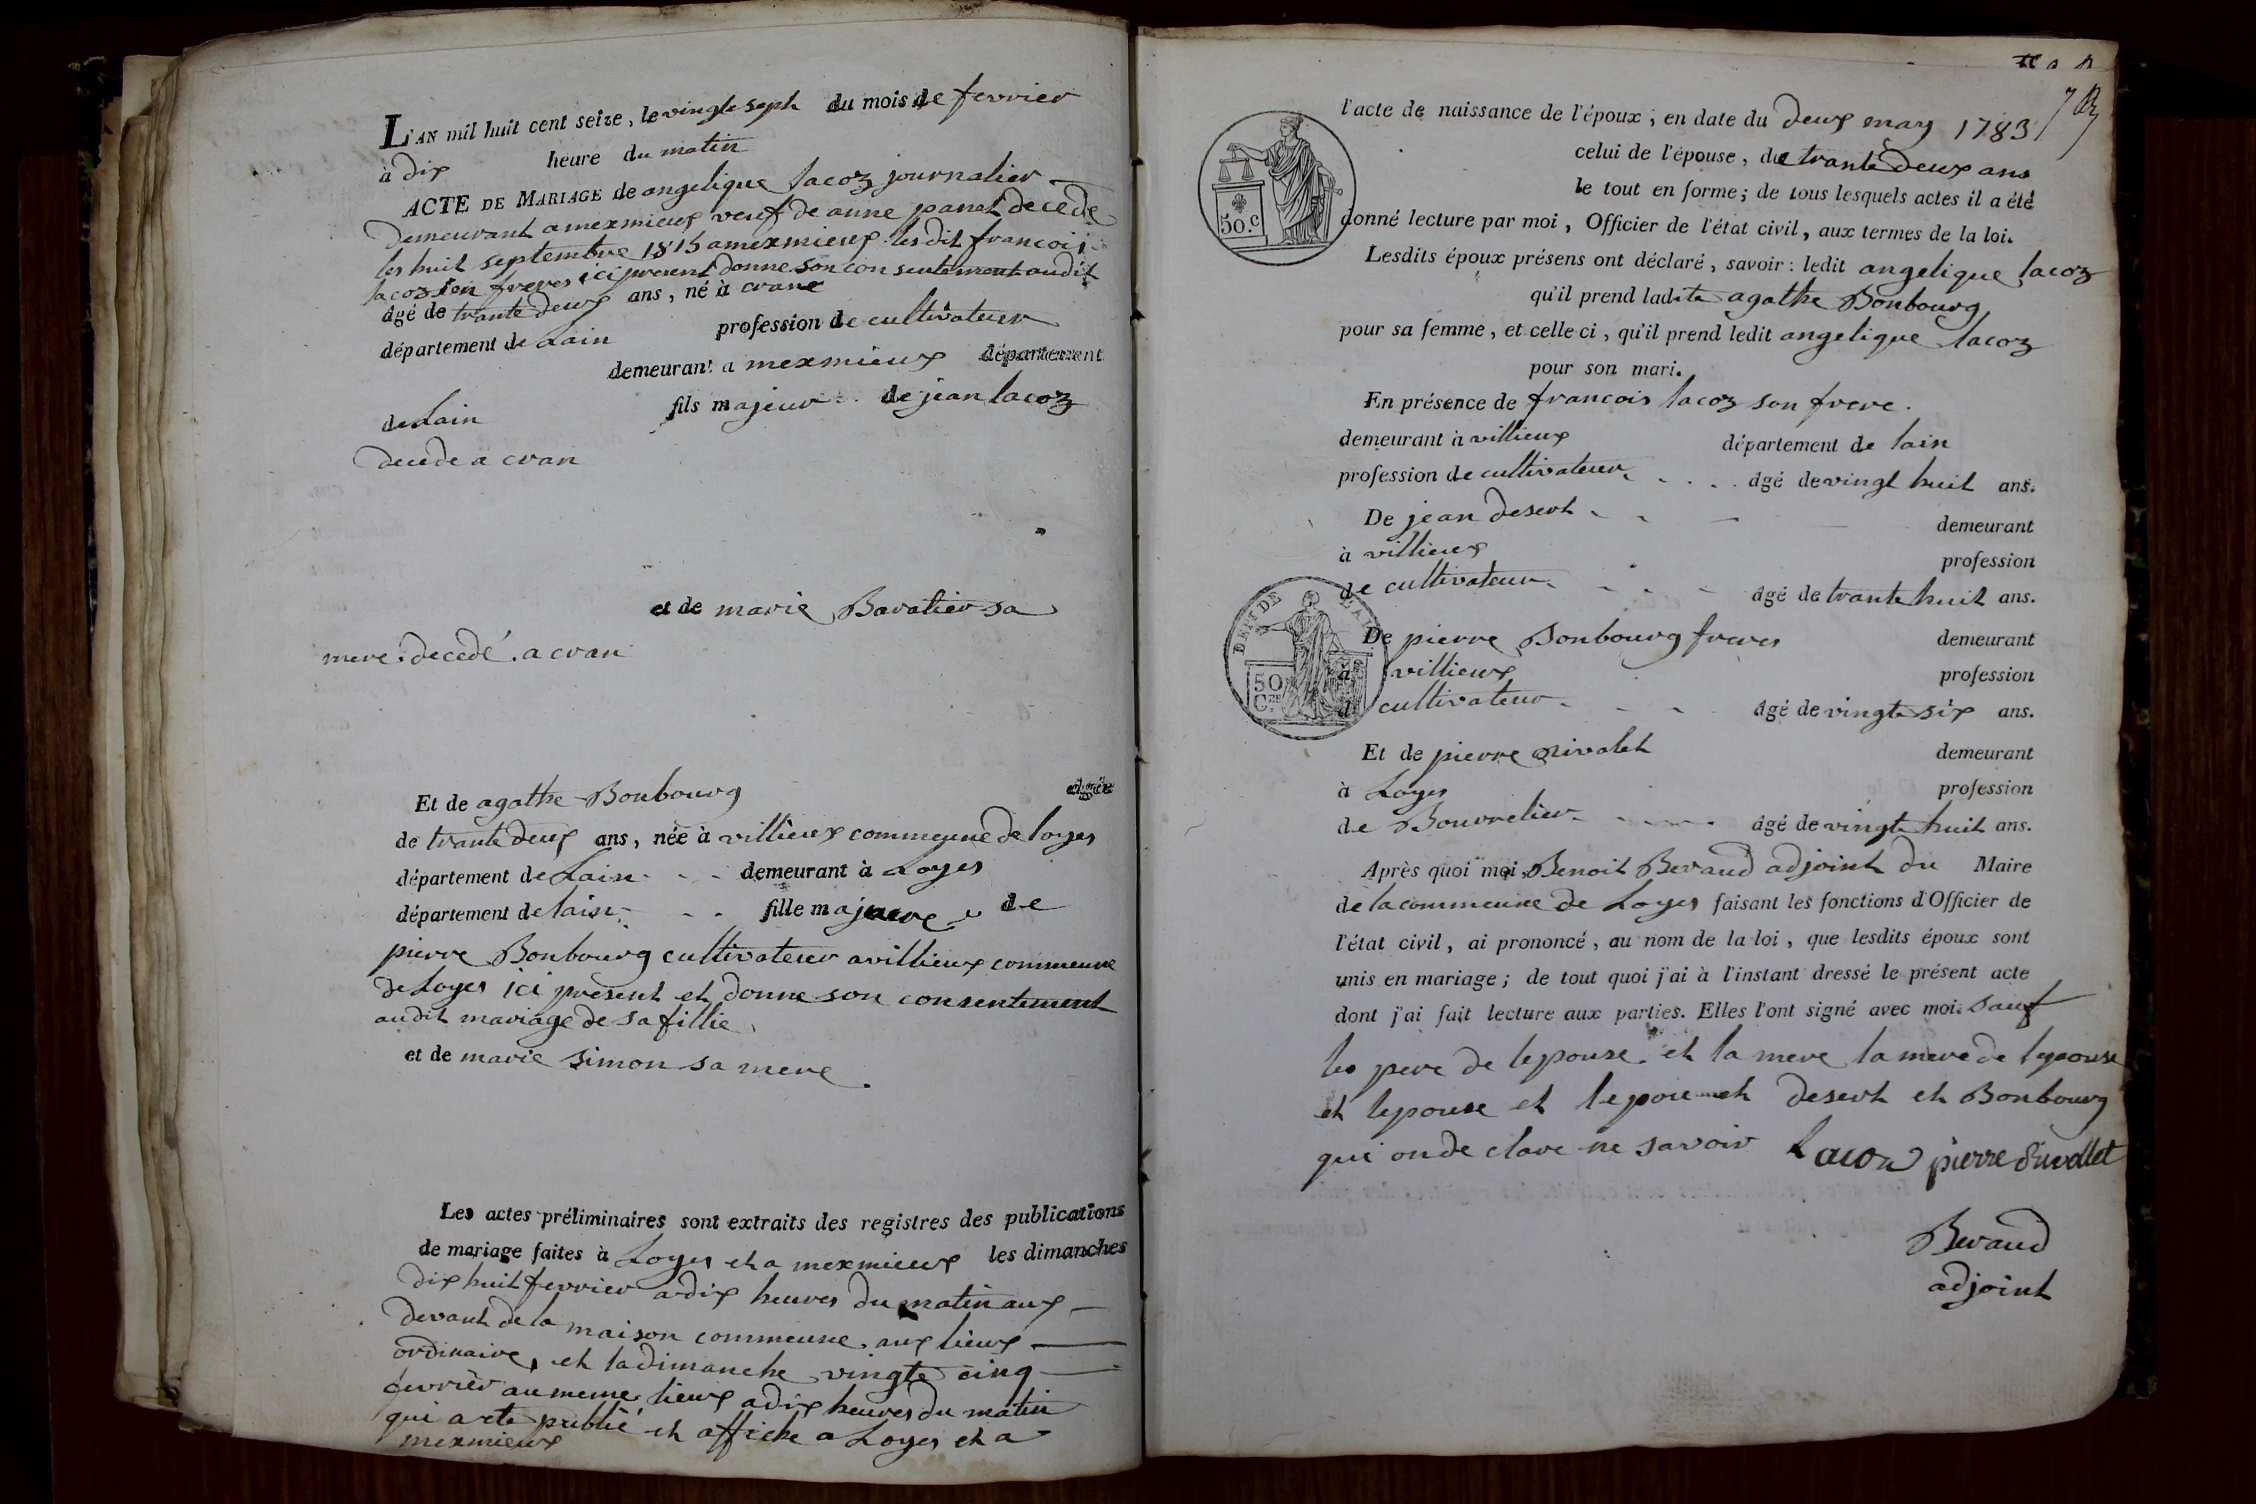 L'AN mil huit cent seize, le vingte seph du mois de fevrier
à dix heure du matin
ACTE DE MARIAGE de angelique lacoz journalier
demeurant a mexmieux veuf de anne panet decede
les huit septembre 1815 a mexmieux les dit francois
lacoz son freres ici present donne son consentement audit
âgé de trante deux ans, né à crane
département de Lain profession de cultivateur
demeurant a mexmieux département
de Lain fils majeur de jean lacoz
decede a cran
et de marie Baratier sa
mere decedé a cran
Et de agathe Bonbourg âgée
de trante deux ans, née à villieux commeune de loyes
département de Lain demeurant à Loyes
département de lain fille majeure de
pierre Bonbourg cultivateur a villieux commeune
de Loyes ici present et donne son consentement
au dit mariage de sa fillie
et de marie simon sa mere.
Les actes préliminaires sont extraits des registres des publications
de mariage faites à Loyes et a mexmieux les dimanches
dix huit fevrier a dix heures du matin aux
devant de la maison commeune aux lieux
ordinaire, et la dimanche vingte cinq
fevrier au meme lieux a dix heures du matin
qui a ete publié et affiche a Loyes et a
mexmieux
l'acte de naissance de l'époux; en date du deux may 1783
celui de l'épouse, de trante deux ans
le tout en forme; de tous lesquels actes il a été
donné lecture par moi, Officier de l'état civil, aux termes de la loi.
50.c
Lesdits époux présens ont déclaré, savoir: ledit angelique lacoz
qu'il prend ladite agathe Bonbourg
pour sa femme, et celle ci, qu'il prend ledit angelique lacoz
pour son mari.
En présence de francois lacoz son frere.
demeurant à villieux département de lain
profession de cultivateur âgé de vingt huit ans.
De jean desert demeurant
à villieux profession
de cultivateur âgé de trante huit ans.
De pierre Bonbourg freres demeurant
à villieux profession
50 Cmes
de cultivateur âgé de vingte six ans.
Et de pierre rivalet demeurant
à Loyes profession
de Bourrelier âgé de vingte huit ans.
Après quoi moi, Benoit Beraud adjoint du Maire
de la commeune de Loyes faisant les fonctions d'Officier de
l'état civil, ai prononcé, au nom de la loi, que lesdits époux sont
unis en mariage; de tout quoi j'ai à l'instant dressé le présent acte
dont j'ai fait lecture aux parties. Elles l'ont signé avec moi. sauf
les pere de lepouse et la mere la mere de lepouse
et lepouse et lepou et desert et Bonbourg
qui on de clare ne savoir Lacoz pierre
Beraud
adjoint